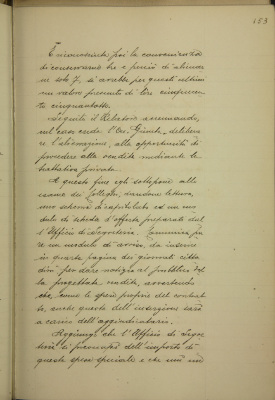 153
È riconosciuta poi la convenienza
di conservarne tre e perciò di alienar
ne solo 7, si avrebbe per questi ultimi
un valore presunto di lire cinquecen
to cinquantotto.
Seguita il Relatore accennando,
nel caso creda l'On. Giunta, delibera
re l'alienazione, alle opportunità di
procedere alla vendita mediante la
trattativa privata.
A questo fine egli sottopone all'e
same dei Colleghi, dandone lettura,
uno schema di capitolato ed un mo
dulo di scheda d'offerta preparati dal
l'Ufficio di Segreteria. Comunica pu
re un modulo di avviso, da inserire
in quarta pagina dei giornali citta
dini per dare notizia al pubblico del
la progettata vendita, avvertendo
che, come le spese proprie del contrat
to, anche queste dell'inserzione sarà
a carico dell'aggiudicatario.
Aggiunge che l'Ufficio di Segre
teria
di queste spese speciali e che